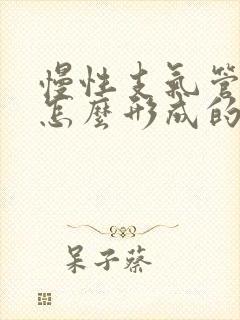 慢性支氣管
怎麼形成的
呆子蔡